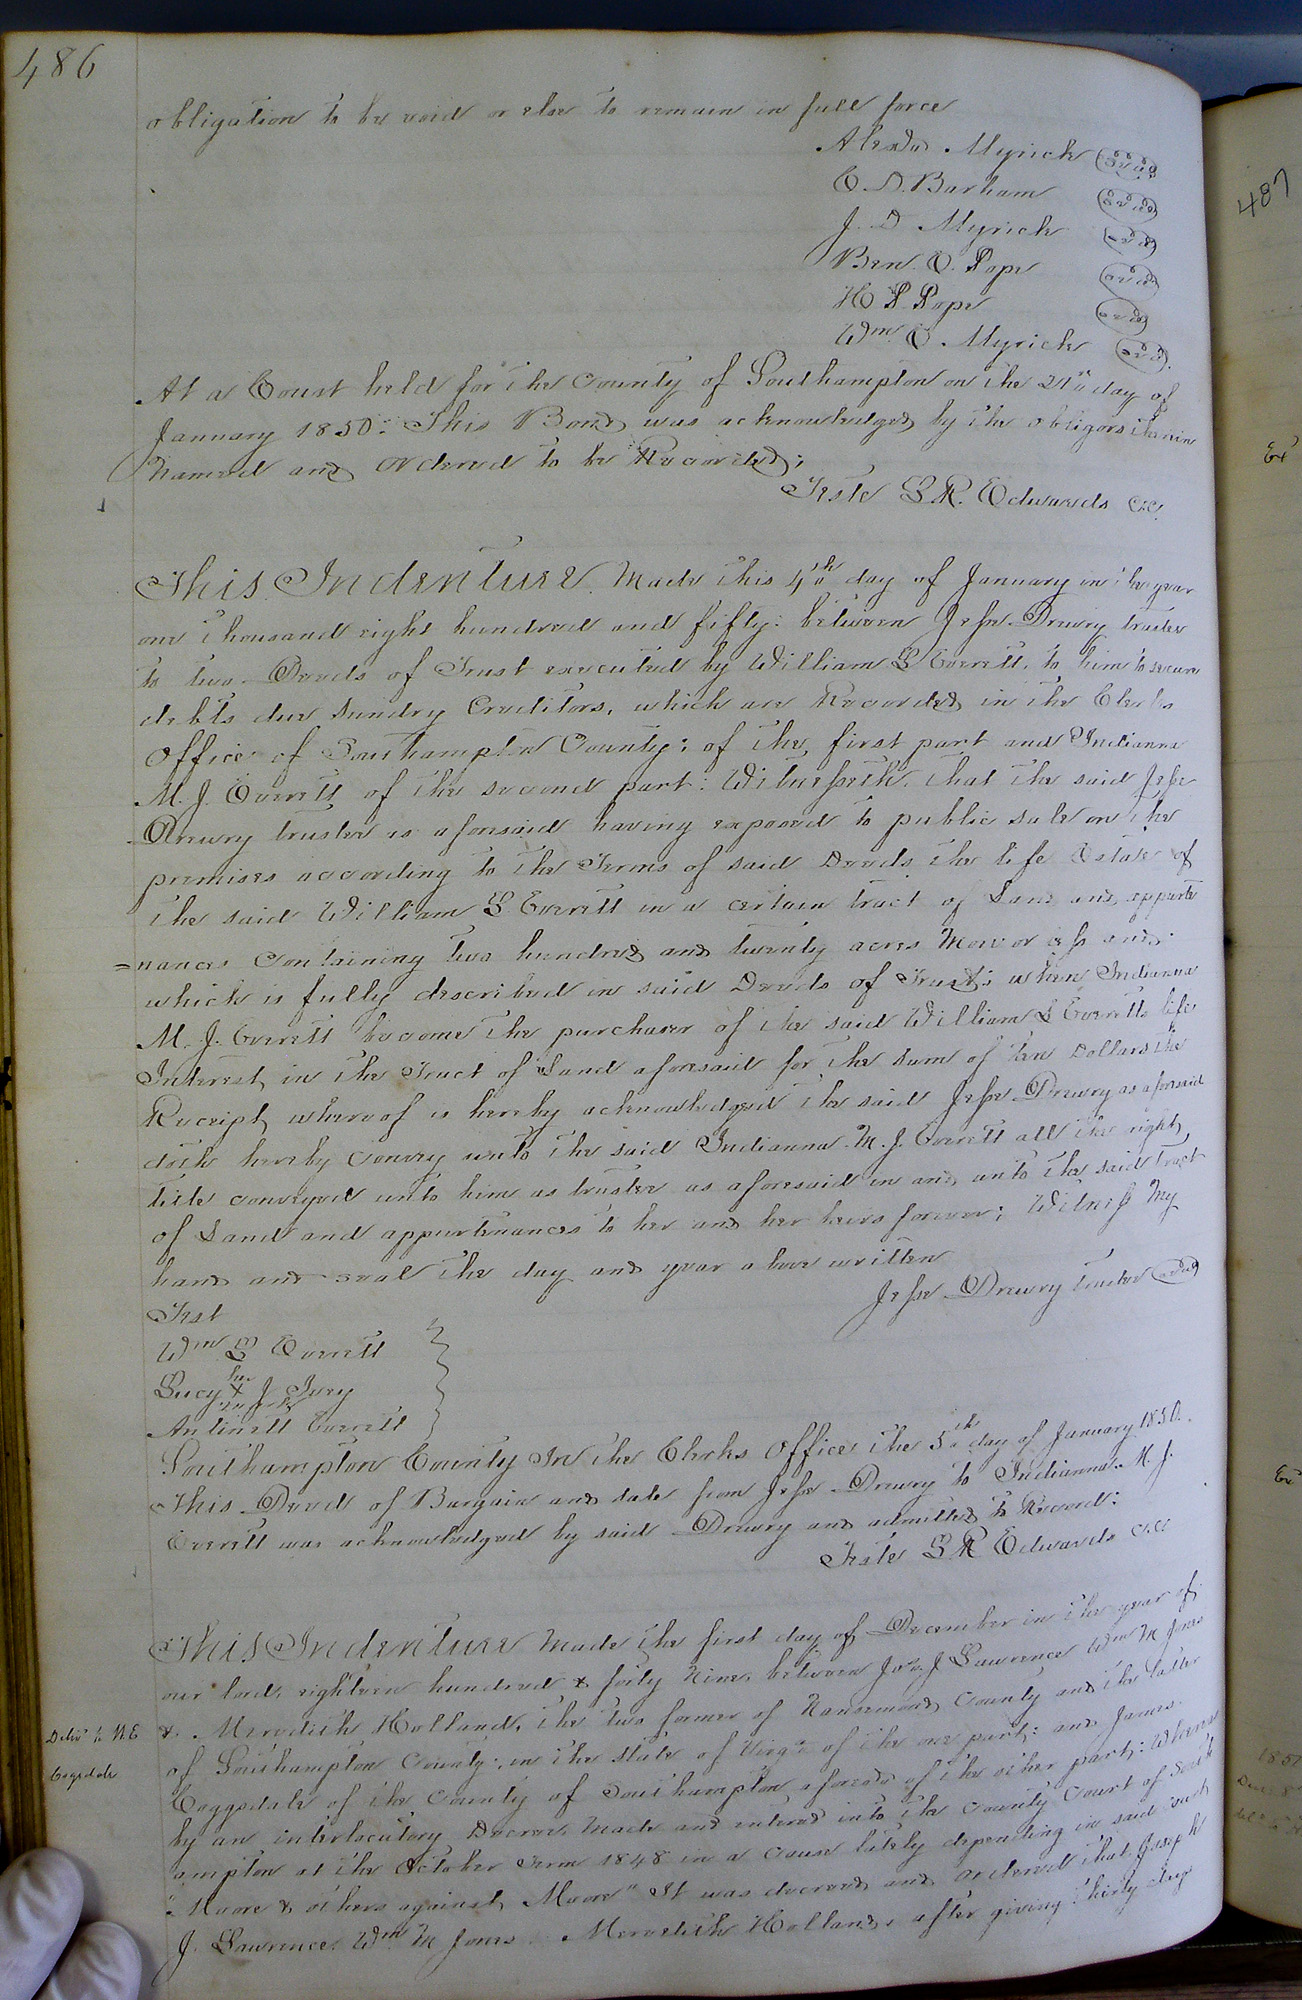 486
obligation to be void or else to remain in full force
Alexdr Myrick (Seal)
E. D. Barham (Seal)
J. D Myrick (Seal)
Ben. E. Pope (Seal)
H P. Pope (Seal)
Wm. E. Myrick (Seal)
At a Court held for the County of Southampton on the 21st day of
January 1850: This Bond was acknowledged by the obligors therein
named and ordered to be Recorded;
Teste L R. Edwards C.C.
This Indenture Made this 4th day of January in the year
one thousand eight hundred and fifty: between Jesse Drewry trustee
to two Deeds of Trust executed by William L Everett, to him to secure
debts due sundry Creditors, which are Recorded in the Clerks
Office of Southampton County; of the first part and Indianna
M. J. Everett of the second part: Witnesseth, that the said Jesse
Drewry trustee as aforesaid having exposed to public sale on the
premises according to the Terms of said Deeds the life Estate of
the said William L. Everett in a certain tract of Land and apparte
=nances Containing two hundred and twenty acres More or less and
which is fully described in said Deeds of Trust; when Indianna
M. J. Everett became the purchaser of the said William L Everetts life
Interest in the Tract of Land aforesaid for the sum of ten Dollars the
Receipt whereof is hereby acknowledged the said Jesse Drewry as aforesaid
doth hereby convey unto the said Indianna M. J. Everett all the right
title conveyed unto him as trustee as aforesaid in and unto the said tract
of Land and appurtenances to her and her heirs forever; Witness My
hand and seal the day and year above written
Jesse Drewry trustee (Seal)
Test
Wm L Everett
Lucy her X mark J Ivey
Antinett Everett
Southampton County In the Clerks Office the 5th day of January 1850.
This Deed of Bargain and sale from Jesse Drewry to Indianna M. J.
Everett was acknowledged by said Drewry and admitted to Record:
Teste L R Edwards C.C.
This Indenture Made the first day of December in the year of
our lord, eighteen hundred & forty Nine, between Jos. J Lawrence Wm M Jones
& Meredith Holland, the two former of Nansemond County and the latter
of Southampton County; in the state of Virga of the one part: and James
Coggsdale of the County of Southampton aforesd of the other part: Whereas
by an interlocutory Decree, Made and entered into the County Court of South
ampton at the October Term 1848 in a cause lately depending in said court
"Moore & others against Moore" It was decreed and ordered that Joseph
J. Lawrence, Wm M Jones Meredith Holland, after giving thirty days
Delivd to N.E
Cogsdale
487
Exd
Exd